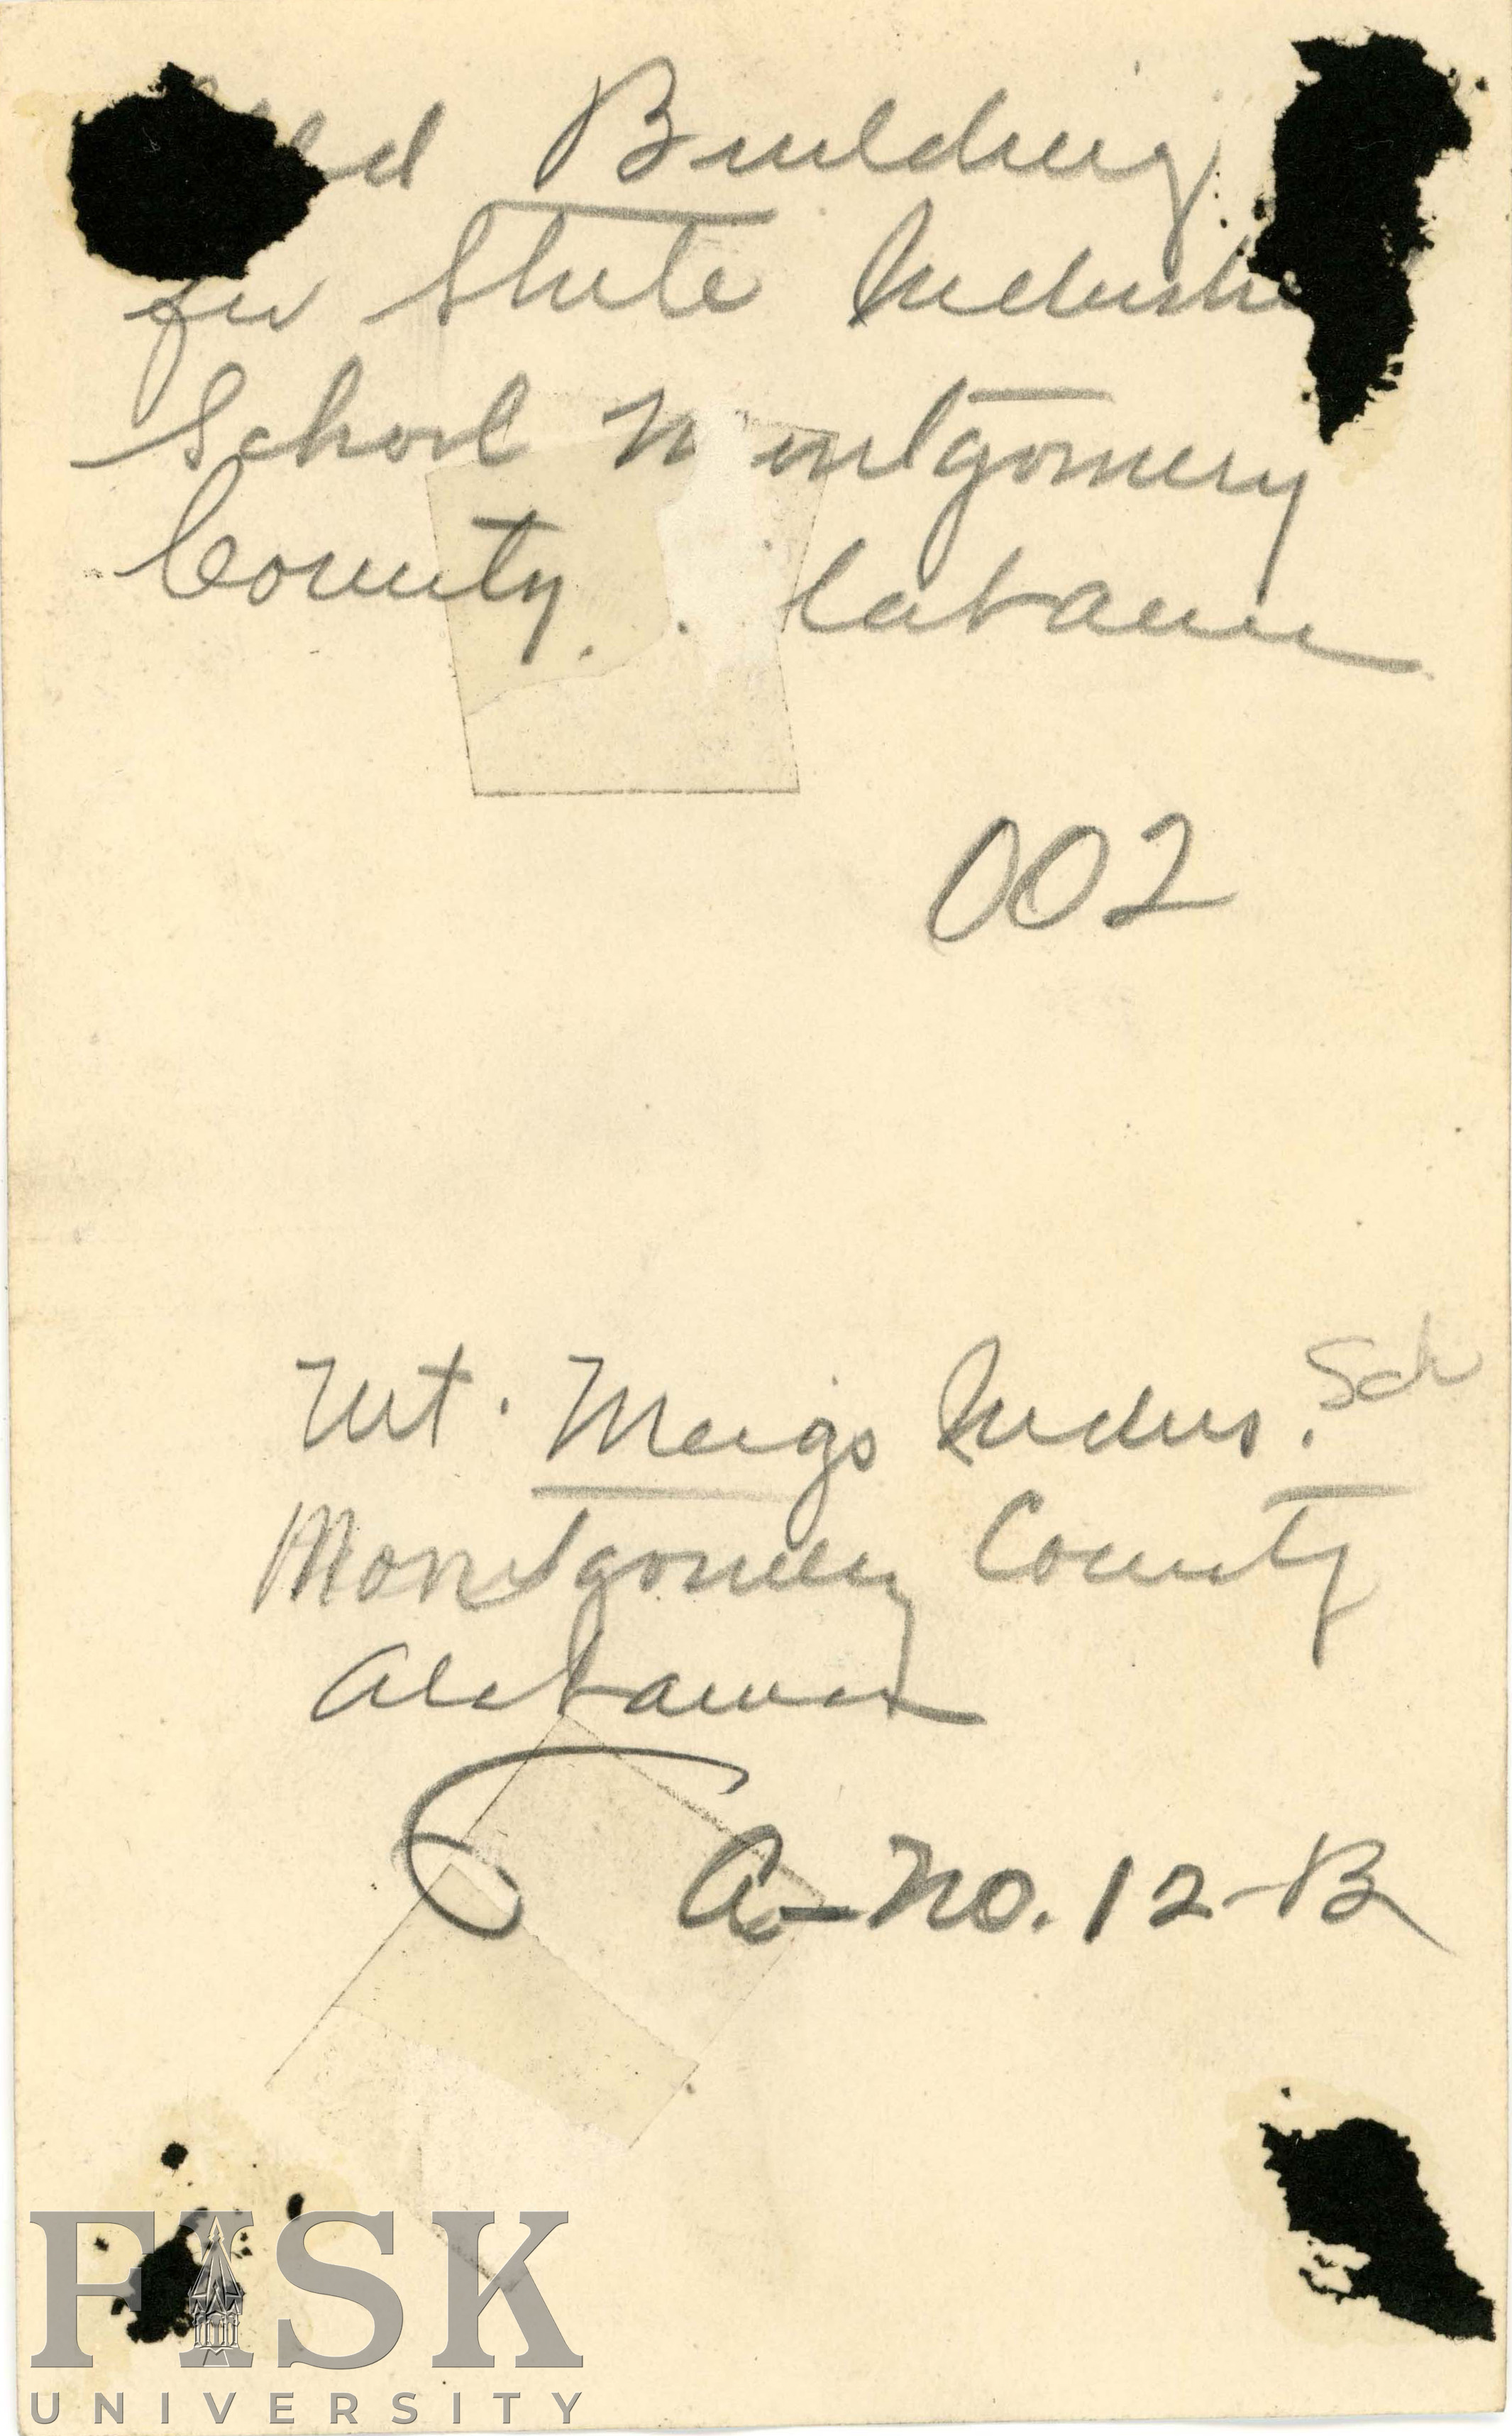 Building
for State
School Montgomery
County. Alabama
002
Mt. Meigs Indus. Sch
Montgomery County
Alabama
A-No. 12-B
FISK
UNIVERSITY